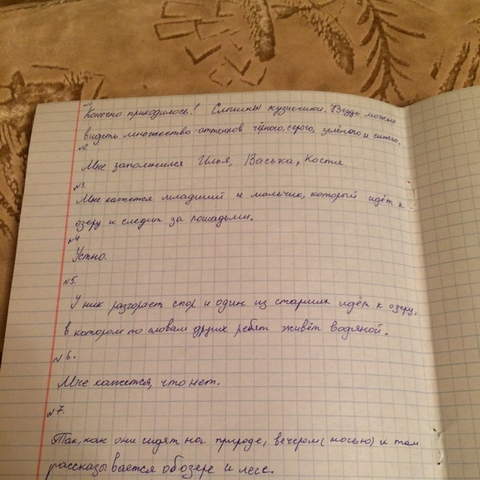 Конечно приходилось! Слышны кузнечики. Везде можно
видеть множество оттенков чёрного, серого, зелёного и синего.
№2
Мне запомнился Илья, Васька, Костя
№3
Мне кажется младший и мальчик, который идёт к
озеру и следит за лошадьми.
№4
Устно.
№5.
У них разгорает спор и один из старших идёт к озеру,
в котором по словам других ребят живёт водяной.
№6.
Мне кажется, что нет.
№7.
Так, как они сидят на природе, вечером (ночью) и там
рассказывается об озере и лесе.